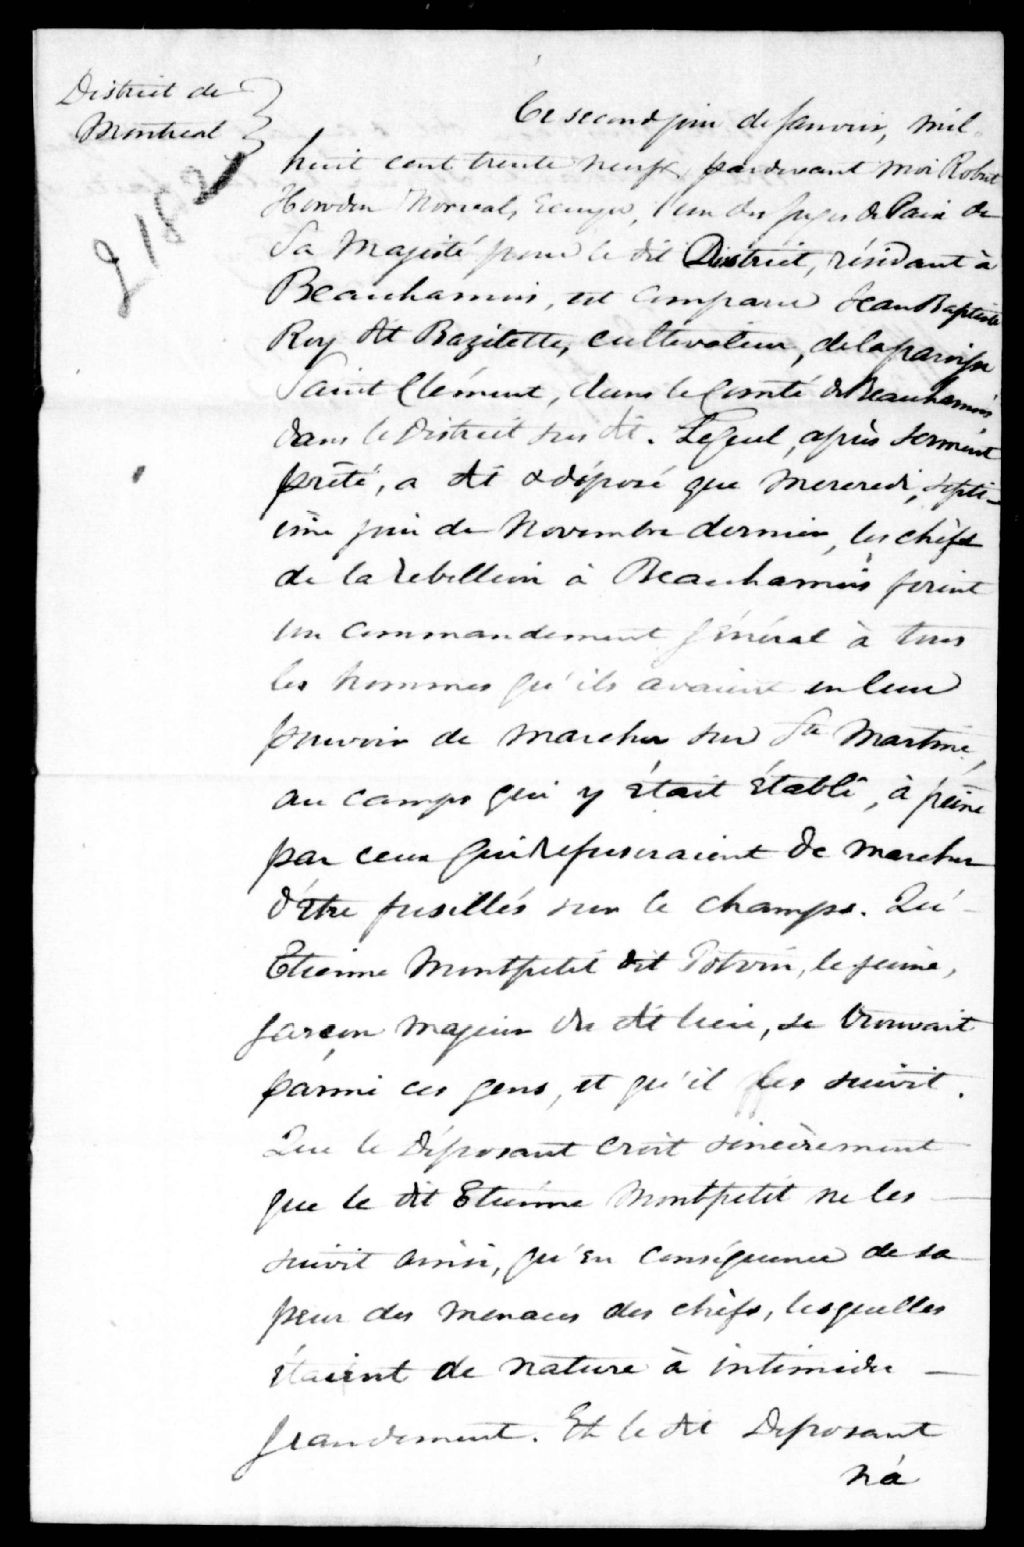 District de
Montreal
2182
Ce second jour de Janvier, mil-
huit cent trente neuf, pardevant moi Robert
Howden Norval, Ecuyer, l'un des Juges de Paix de
Sa Majesté pour le dit District, résidant à
Beauharnois, est comparu Jean Baptiste
Roy dit Bazilette, cultivateur, de la paroisse
Saint Clément, dans le Comté de Beauharnois
dans le District sus dit. Lequel, après serment
prêté, a dit & déposé que Mercredi, septi-
ème jour de Novembre dernier, les chefs
de la rebellion à Beauharnois firent
un commandement général à tous
les hommes qu'ils avaient en leur
pouvoir de marcher sur Ste Martine,
au camps qui y était établi, à peine
par ceux qui refuseraient de marcher
d'être fusillés sur le champs. Qu'
Etienne Montpetit dit Potvin, le jeune,
garçon majeur du dit lieu, se trouvait
parmi ces gens, et qu'il les suivit.
Que le Déposant croit sincèrement
que le dit Etienne Montpetit ne les
suivit ainsi, qu'en conséquence de sa
peur des menaces des chefs, lesquelles
étaient de nature à intimider
grandement. Et le dit Deposant
n'a